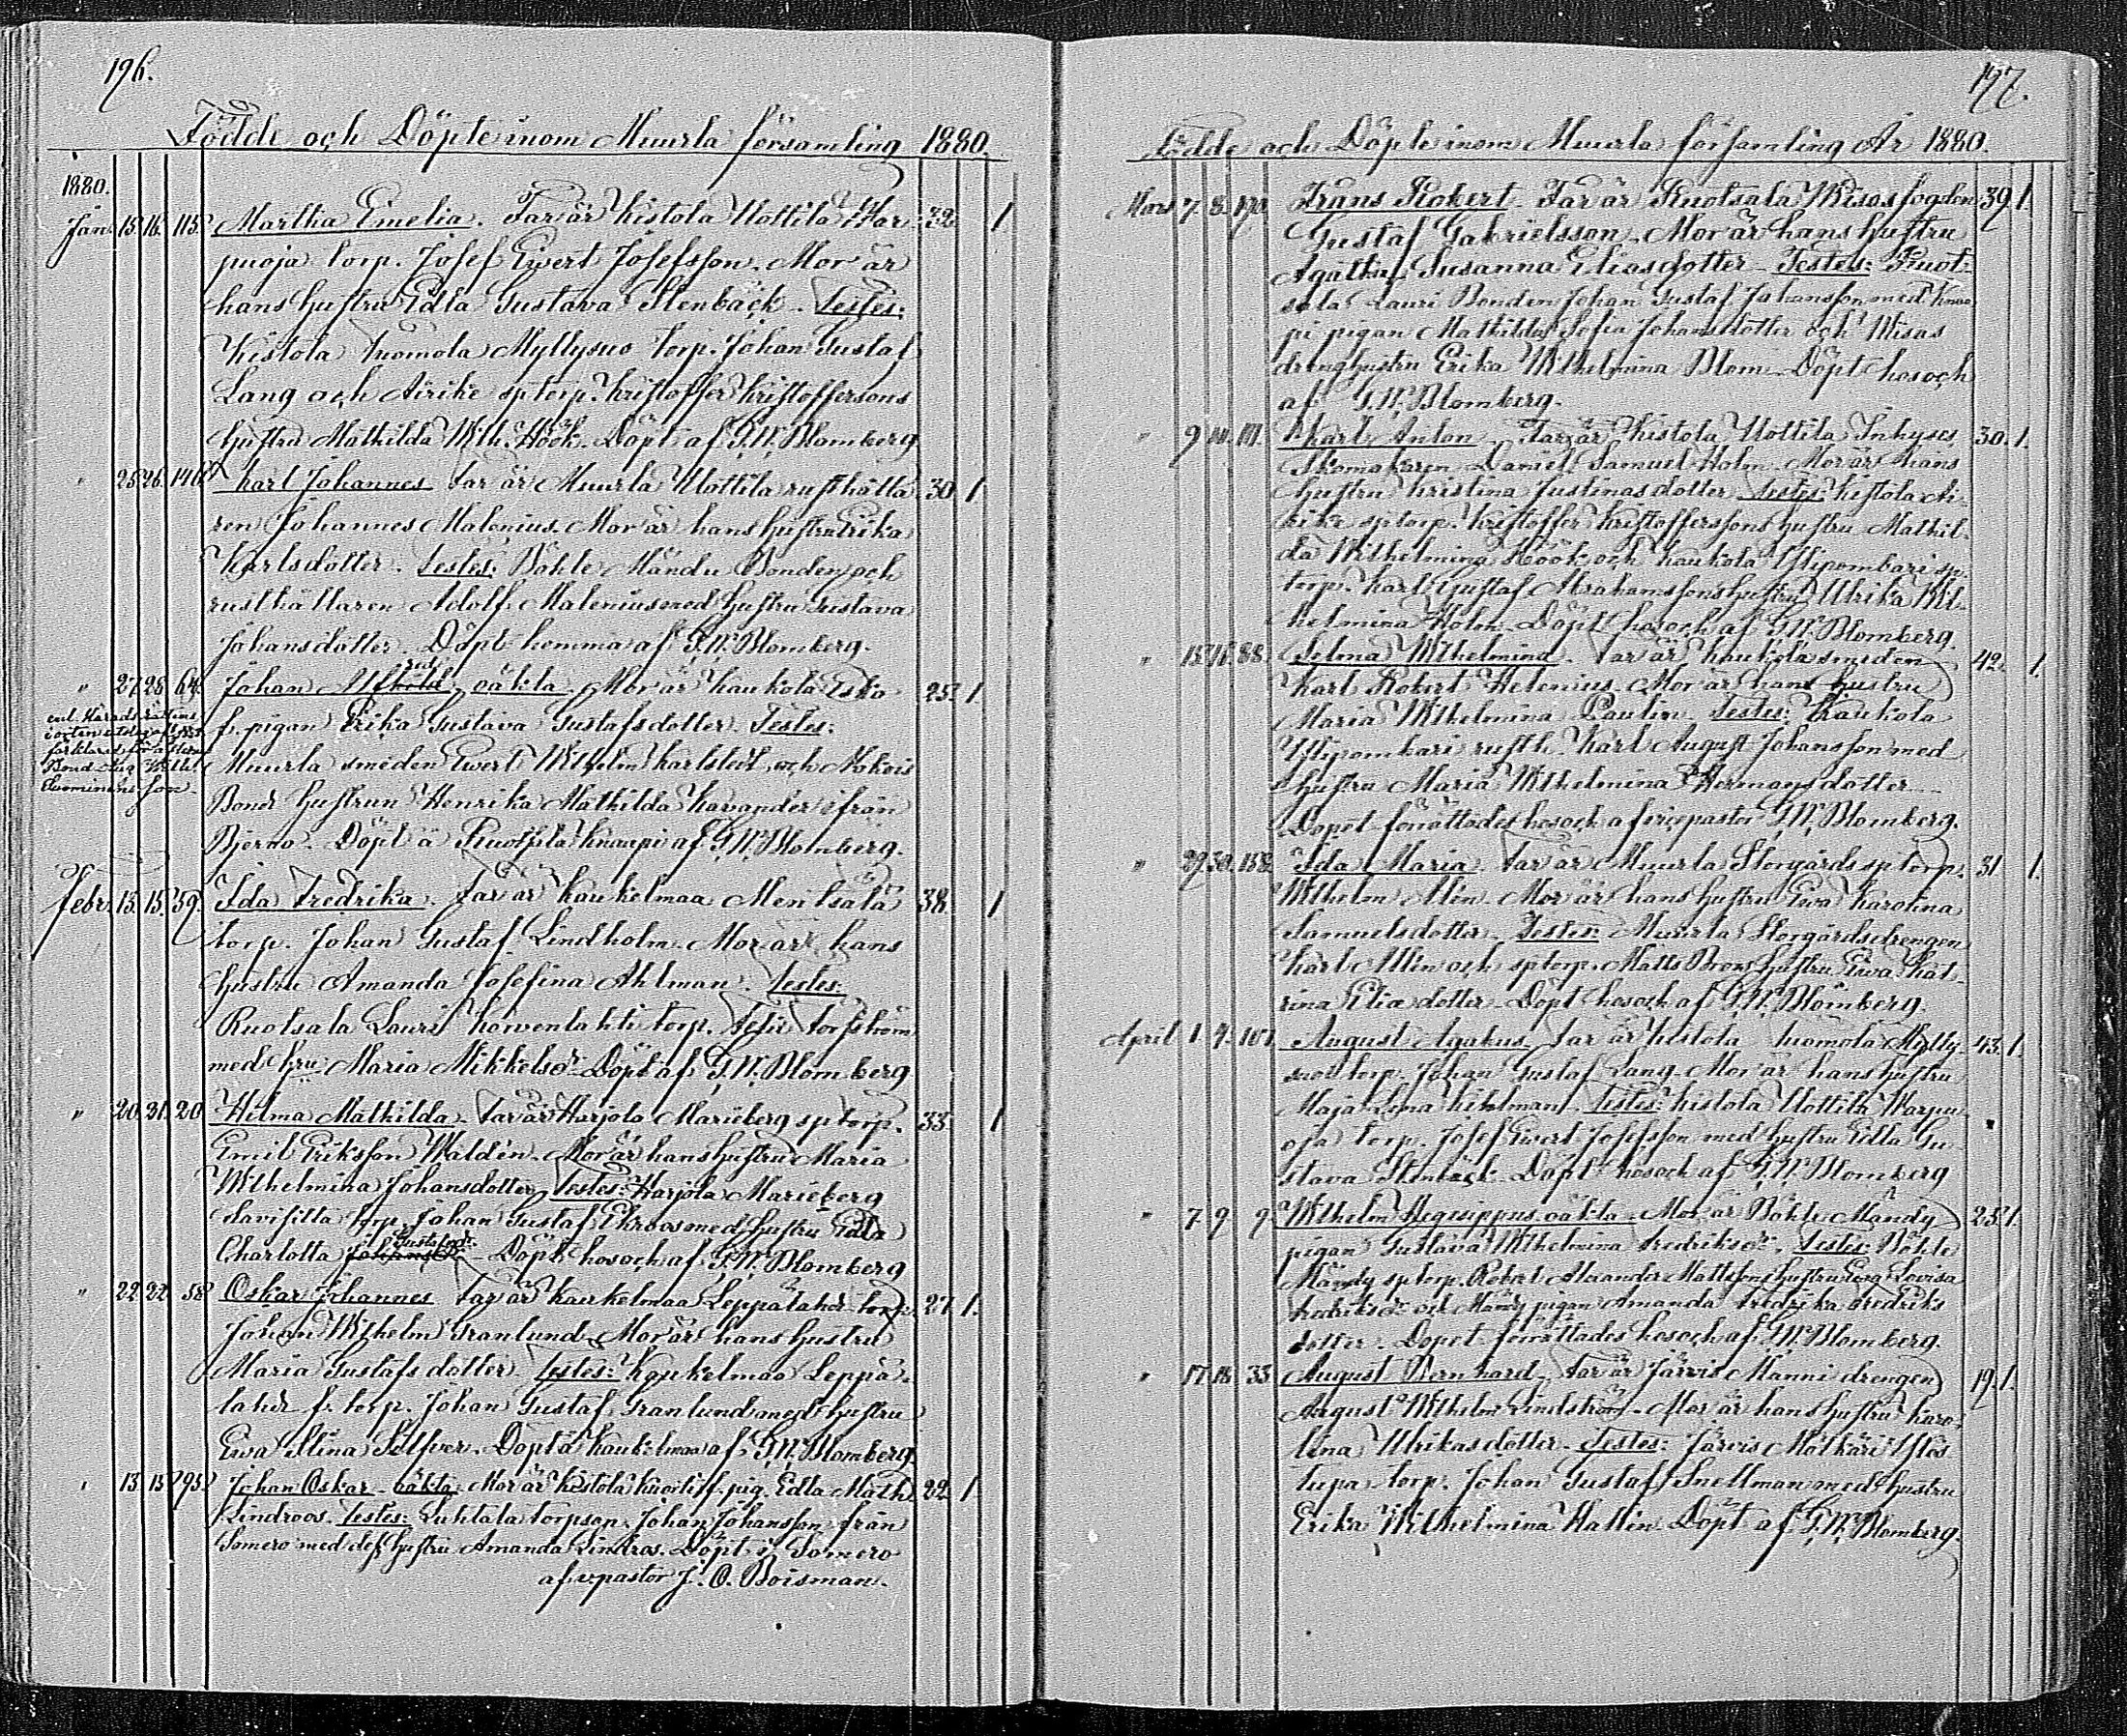 196.
Födde och Döpte inom Muurla församling 1880.
1880.
Jan. 15. 16. 115. Martha Emelia. Far är Kistola Uottila War- 32. 1
puoja torp. Josef Ewert Josefsson. Mor är
hans hustru Edla Gustava Stenbäck. Testes:
Kistola Tuomola Myllysuo torp. Johan Gustaf
Lang och Äirike sp torp. Kristoffer Kristoffersons
hustru Mathilda Wilh. Höök. Döpt af G.W. Blomberg
" 25. 26. 146. Karl Johannes. Far är Muurla Uottila rusthålla 30. 1.
ren Johannes Malenius. Mor är hans hustru Erika
Karlsdotter. Testes: Pöhle Mändu Bonden och
rusthållaren Adolf Malenius med hustru Gustava
Johansdotter. Döpt hemma af G.W. Blomberg.
" 27. 28. 64. Johan oäkta. Mor är Kaukola Esko 25. 1.
f. pigan Erika Gustava Gustafsdotter. Testes:
Muurla smeden Ewert Wilhelm Karlstedt och
Bond hustrun Henrika Mathilda Kavander ifrån
Bjerno. Döpt å Ruotsala Knaapi af G.W. Blomberg.
Febr. 13. 15. 39. Ida Fredrika. Far är Kaukelmaa Mentsälä 38. 1
torp. Johan Gustaf Lindholm. Mor är hans
hustru Amanda Josefina Ahlman. Testes:
Ruotsala Lauri Korvenlahti torp. Torström
med hru Maria Mikkelsdr. Döpt af G.W. Blomberg
" 20. 21. 20. Hilma Mathilda. Far är Harjola Marieberg sp torp. 33. 1
Emil Eriksson Waldén. Mor är hans hustru Maria
Wilhelmina Johansdotter. Testes: Harjola Marieberg
Savisilta torp. Johan Gustaf Ekroos med hustru Edla
Charlotta Gustafsdr. Döpt hos och af G.W. Blomberg
" 22. 22. 58. Oskar Johannes. Far är Kaukelmaa Leppälahd torp. 27. 1.
Johan Wilhelm Granlund. Mor är hans hustru
Maria Gustafsdotter. Testes: Kaukelmaa Leppä-
lahd f. torp. Johan Gustaf Granlund med hustru
Ewa Stina Silfver. Döpt å Kaukelmaa af G.W. Blomberg
" 13. 15. 295. Johan Oskar. oäkta. Mor är Kistola f. pig. Edla Math. 22. 1
Lindroos. Testes: Luhtala torpson Johan Johansson från
Somero med dess hustru Amanda Lindros. Döpt i Somero
af v. pastor J. O. Boisman.
197.
Födde och Döpte inom Muurla församling År 1880.
Mars 7. 8. 170. Frans Robert. Far är Ruotsala Wisas fogden 39. 1.
Gustaf Gabrielsson. Mor är hans hustru
Agatha Susanna Eliasdotter. Testes: Ruot-
sala Lauri Bonden Johan Gustaf Johansson med Knaa
pi pigan Mathilda Sofia Johansdotter och Wisas
dränghustru Erika Wilhelmina Blom. Döpt hos och
af G.W. Blomberg.
" 9. 10. 111. Karl Anton. Far är Kistola Uottila Inhyses 30. 1.
Skomakaren Daniel Samuel Holm. Mor är hans
hustru Kristina Justinasdotter. Testes: Kistola Äi-
rike sp torp. Kristoffer Kristofferssons hustru Mathil-
da Wilhelmina Höök och Kaukola Ylipombari sp.
torp. Karl Gustaf Abrahamssons hustru Ulrika Wil-
helmina Holm. Döpt hos och af G.W. Blomberg.
" 15. 16. 88. Selma Wilhelmina. Far är Kaukola smeden 42. 1.
Karl Robert Helenius. Mor är hans hustru
Maria Wilhelmina Paulin. Testes: Kaukola
Ylipombari rusth. Karl August Johansson med
hustru Maria Wilhelmina Hermansdotter.
Dopet förrättades hos och af vicepastor G.W. Blomberg.
" 29. 30. 158. Ida Maria. Far är Muurla Storgårds sp torp. 31. 1.
Wilhelm Alén. Mor är hans hustru Ewa Karolina
Samuelsdotter. Testes: Muurla Storgårds drengen
Karl Alén och sp torp. Matts Brors hustru Ewa Kat-
rina Eliædotter. Döpt hos och af G.W. Blomberg.
April 1. 4. 101. August Agabus. Far är Kistola Tuomola Mylly- 43. 1.
suo torp. Johan Gustaf Lang. Mor är hans hustru
Maja Lena Kihlman. Testes: Kistola Uottila Warpu-
oja torp. Josef Ewert Josefsson med hustru Edla Gu-
stava Stenbäck. Döpt hos och af G.W. Blomberg
" 7. 9. 9. Wilhelm Hegesippus. oäkta. Mor är Pöhle Mändy 25. 1.
pigan Gustava Wilhelmina Fredriksdr. Testes: Pöhle
Mändy sp torp. Robert Alexander Mattssons hustru Ewa Lovisa
Fredriksdr och Mändy pigan Amanda Fredrika Fredriks
dotter. Dopet förrättades hos och af G.W. Blomberg.
" 17. 18. 33. August Bernhard. Far är Järvis Manni drengen 19. 1.
August Wilhelm Lindström. Mor är hans hustru Karo-
lina Ulrikasdotter. Testes: Järvis Mölkäri Ylös-
tupa torp. Johan Gustaf Snellman med hustru
Erika Wilhelmina Hallin. Döpt af G.W. Blomberg.